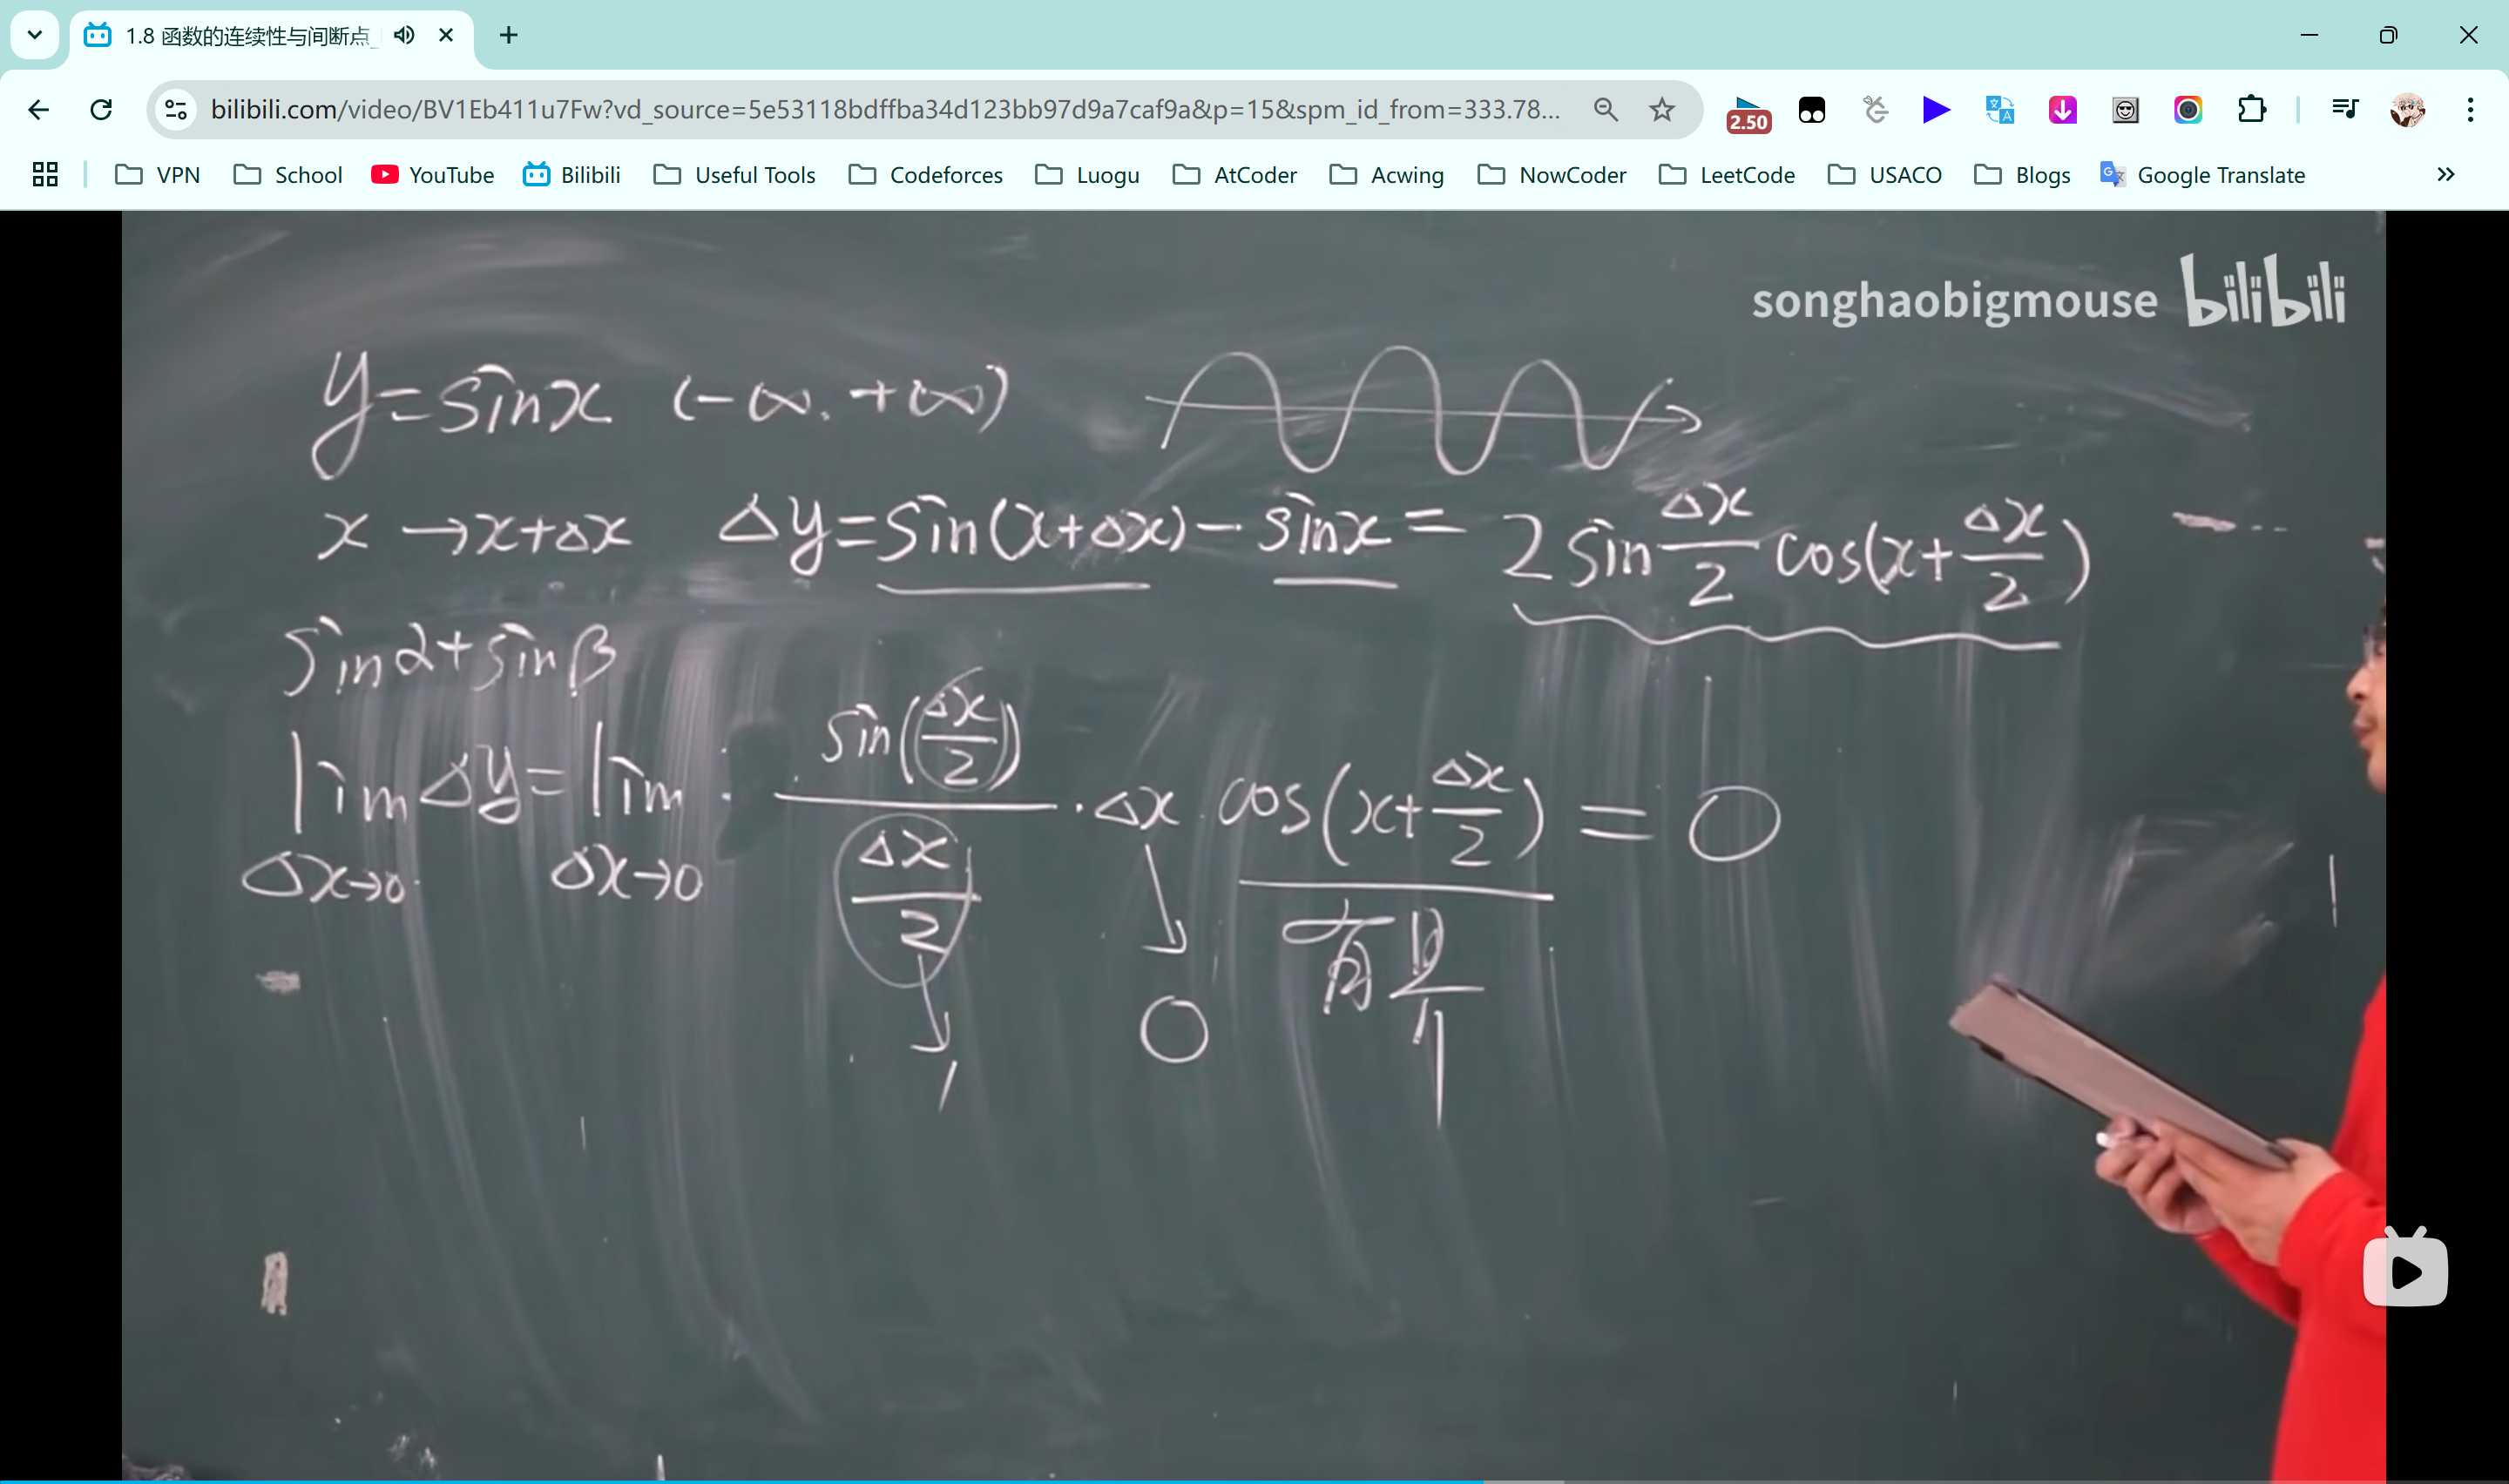 1.8 函数的连续性与间断点_
bilibili.com/video/BV1Eb411u7Fw?vd_source=5e53118bdffba34d123bb97d9a7caf9a&p=15&spm_id_from=333.78...
2.50
VPN School YouTube Bilibili Useful Tools Codeforces Luogu AtCoder Acwing NowCoder LeetCode USACO Blogs Google Translate
songhaobigmouse bilibili
y=sinx (-∞. +∞)
x →x+Δx Δy=sin(x+Δx)-sinx= 2sin Δx/2 cos(x+Δx/2)
sinα+sinβ
lim Δy=lim sin(Δx/2) / (Δx/2) · Δx · cos(x+Δx/2) = 0
Δx→0 Δx→0 有界
1 0